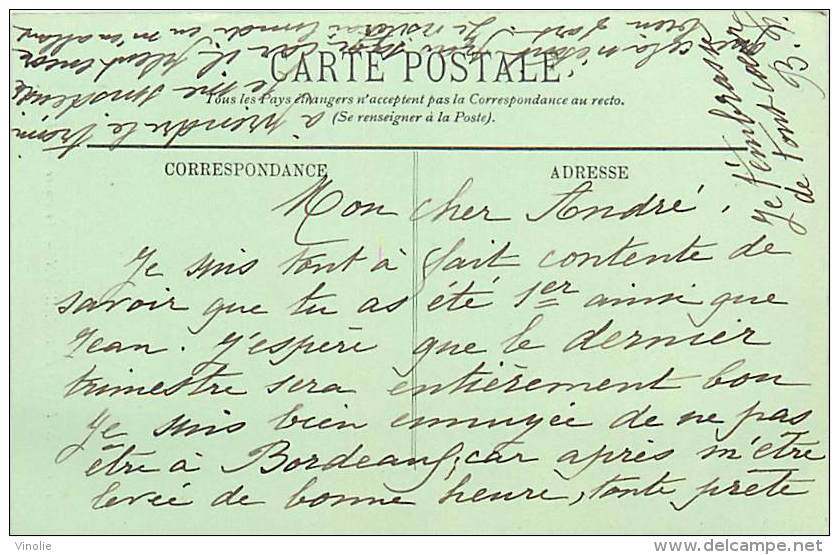 CARTE POSTALE
Tous les Pays étrangers n'acceptent pas la Correspondance au recto.
(Se renseigner à la Poste).
CORRESPONDANCE
ADRESSE
Mon cher André,
Je suis tout à fait contente de
savoir que tu as été 1er ainsi que
Jean. J'espère que le dernier
trimestre sera entièrement bon
Je suis bien ennuyée de ne pas
être à Bordeaux, car après m'être
levée de bonne heure, toute prête
à prendre le train
je me
car il pleut
Je t'embrasse
de tout cœur
B.
Vinolie
www.delcampe.net